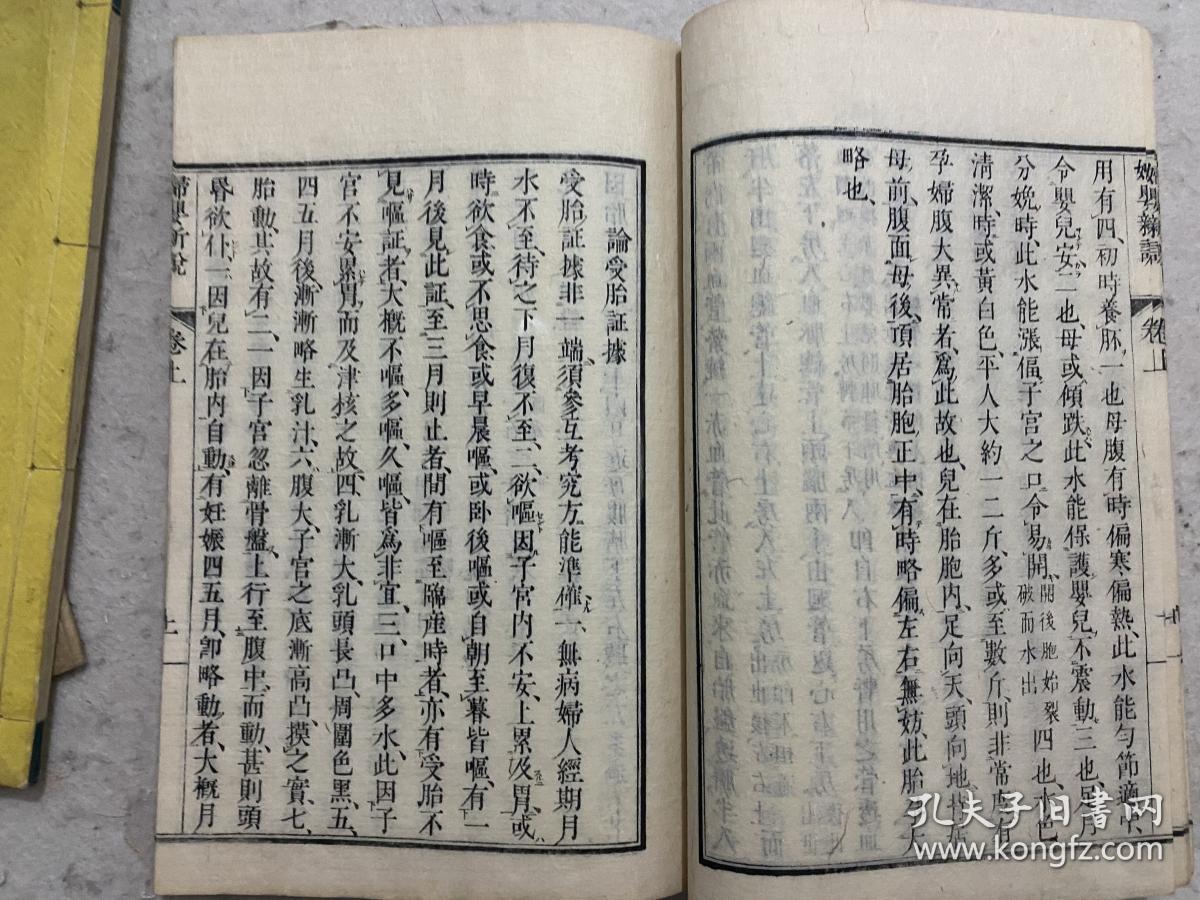 婦嬰新說 卷上
用有四、初時養胚、一也、母腹有時偏寒偏熱、此水能勻節適中
令嬰兒安、二也、母或傾跌、此水能保護嬰兒、不震動、三也、足月
分娩時、此水能漲偪子宮之口、令易開、開後胞始裂破而水出四也、水色
清潔、時或黃白色、平人大約一二斤、多或至數斤、則非常、嘗有
孕婦腹大異常者、爲此故也、兒在胎胞內、足向天、頭向地、
母前、腹面母後、頂居胎胞正中、有時略偏、左右無妨、此胎之大
略也、
論受胎証據
受胎証據、非一端、須參互考究、方能準確、一、無病婦人、經期月
水不至、待之下月復不至、二、欲嘔、因子宮內不安、上累及胃、或
時欲食、或不思食、或早晨嘔、或卧後嘔、或自朝至暮皆嘔、有一
月後見此証、至三月則止者、間有嘔至臨産時者、亦有受胎不
見嘔証者、大概不嘔、多嘔、久嘔、皆爲非宜、三、口中多水、此因子
官不安、累胃而及津核之故、四、乳漸大、乳頭長凸、周圍色黑、五、
四五月後、漸漸略生乳汁、六、腹大、子宮之底漸高凸、摸之實、七、
胎動、其故有二、一因子宮忽離骨盤、上行至腹中、而動、甚則頭
昏欲仆、一因兒在胎內自動、有妊娠四五月、卽略動者、大概月
婦嬰新說 卷上
孔夫子旧書网
www.kongfz.com